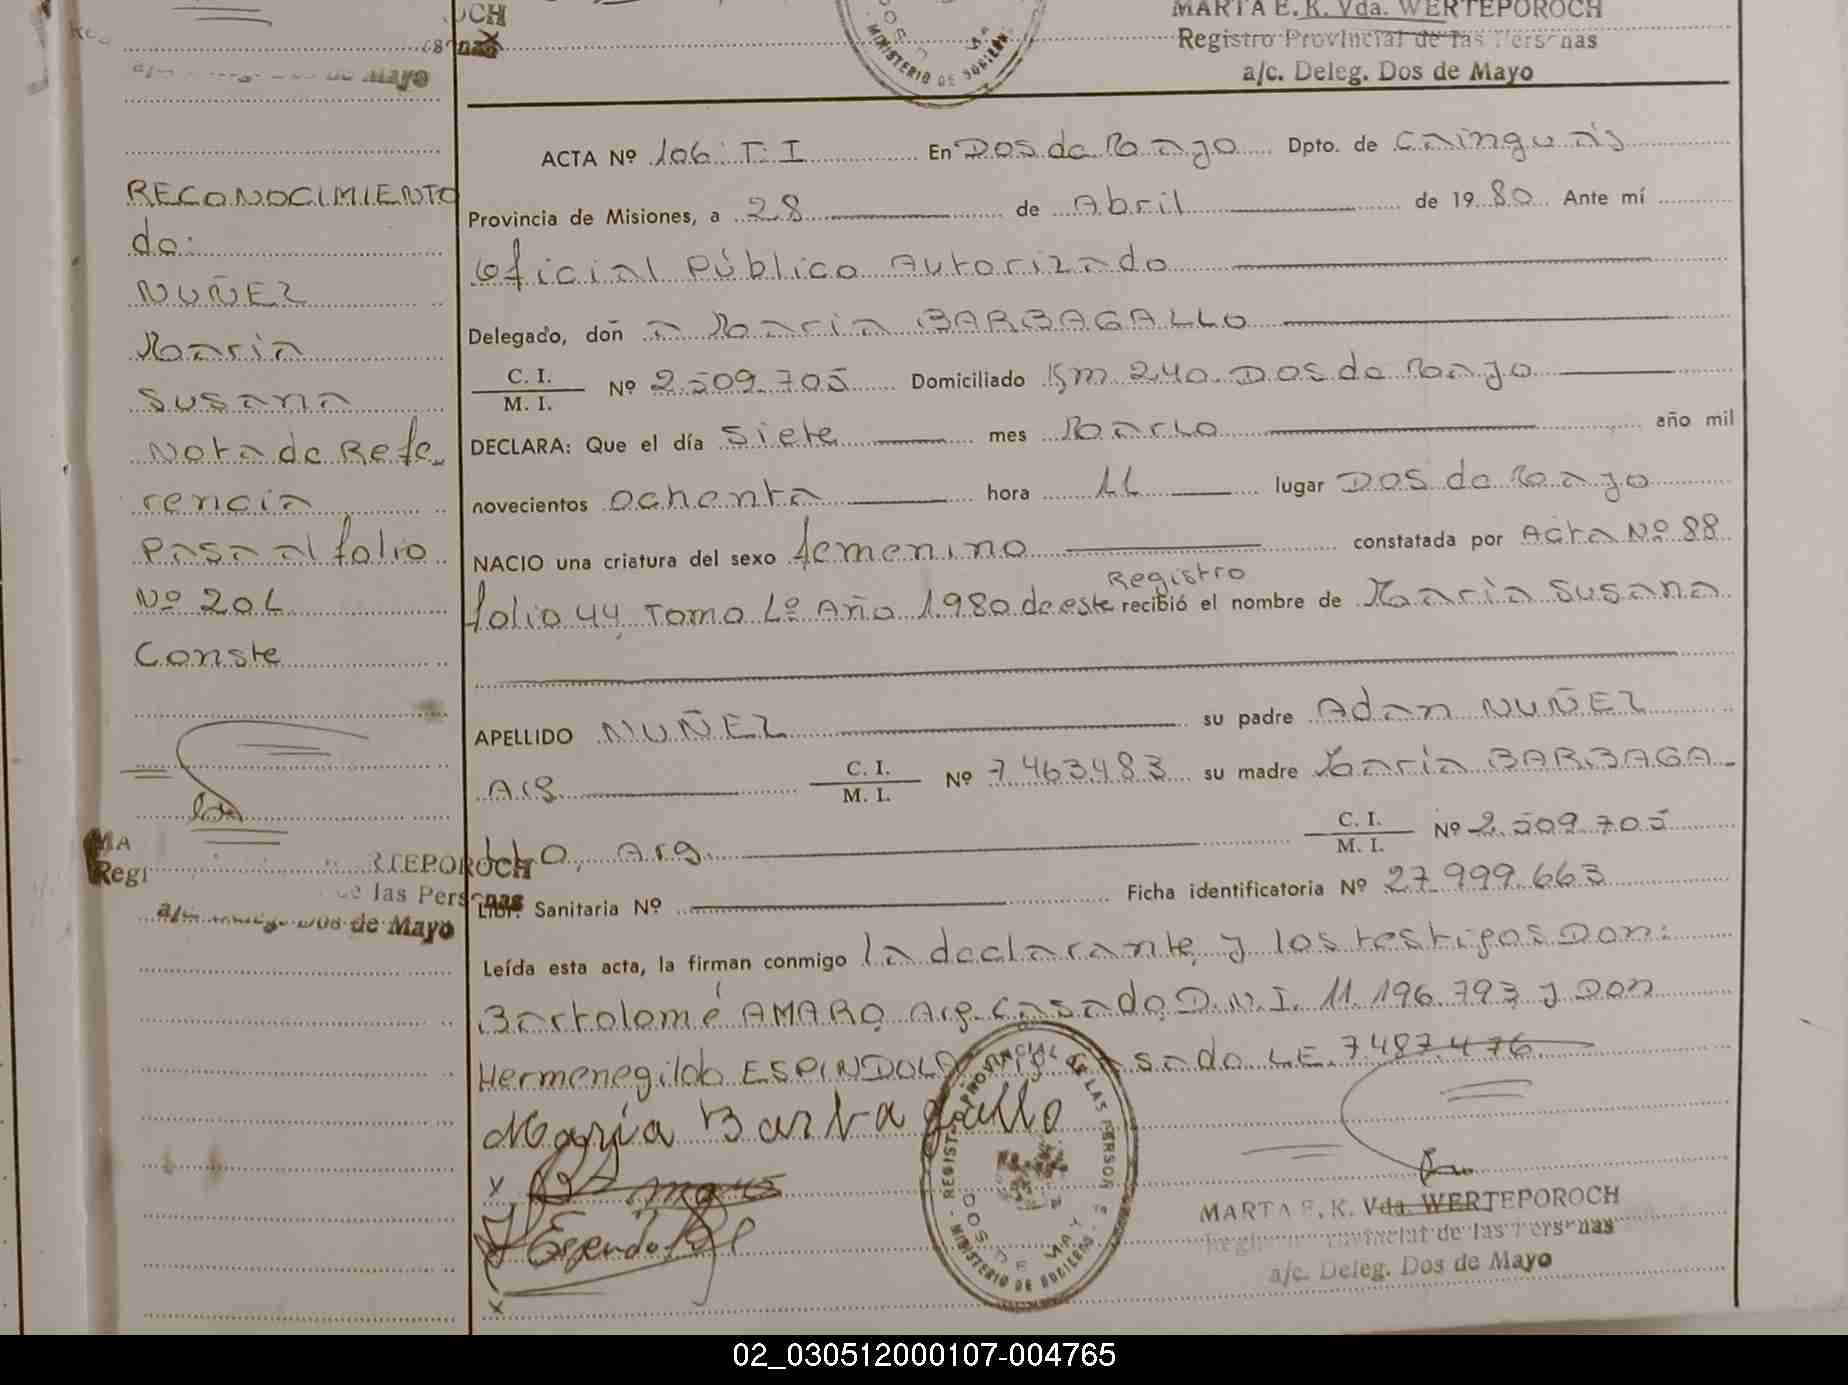 OCH
MARTA E. K. Vda. WERTEPOROCH
Registro Provincial de las Personas
a/c. Deleg. Dos de Mayo
de Mayo
MINISTERIO DE GOBIERNO
RECONOCIMIENTO
de:
NUÑEZ
Maria
Susana
Nota de Refe-
rencia
Pasa al folio
Nº 201
Conste
RTEPOROCH
Regi
de las Personas
Dos de Mayo
ACTA Nº 106 T. I En Dos de Mayo Dpto. de Cainguás
Provincia de Misiones, a 28 de Abril de 1980. Ante mí
Oficial Público Autorizado
Delegado, doña Maria BARBAGALLO
C. I. / M. I. Nº 2.509.705 Domiciliado Km 240 Dos de Mayo
DECLARA: Que el día siete mes Marzo año mil
novecientos ochenta hora 11 lugar Dos de Mayo
NACIO una criatura del sexo femenino constatada por Acta Nº 88
folio 44 Tomo 1º Año 1980 de este Registro recibió el nombre de Maria Susana
APELLIDO NUÑEZ su padre Adan NUÑEZ
Arg C. I. / M. I. Nº 7.463.483 su madre Maria BARBAGA-
LLO, Arg. C. I. / M. I. Nº 2.509.705
Libr. Sanitaria Nº Ficha identificatoria Nº 27.999.663
Leída esta acta, la firman conmigo la declarante y los testigos Don:
Bartolomé AMARO Arg. Casado D.N.I. 11.196.793 y Don
Hermenegildo ESPINDOLA Arg Casado L.E. 7487476
Maria Barbagallo
REGISTRO PROVINCIAL DE LAS PERSONAS
DOS DE MAYO
MINISTERIO DE GOBIERNO
MARTA E. K. Vda. WERTEPOROCH
Registro Provincial de las Personas
a/c. Deleg. Dos de Mayo
02_030512000107-004765